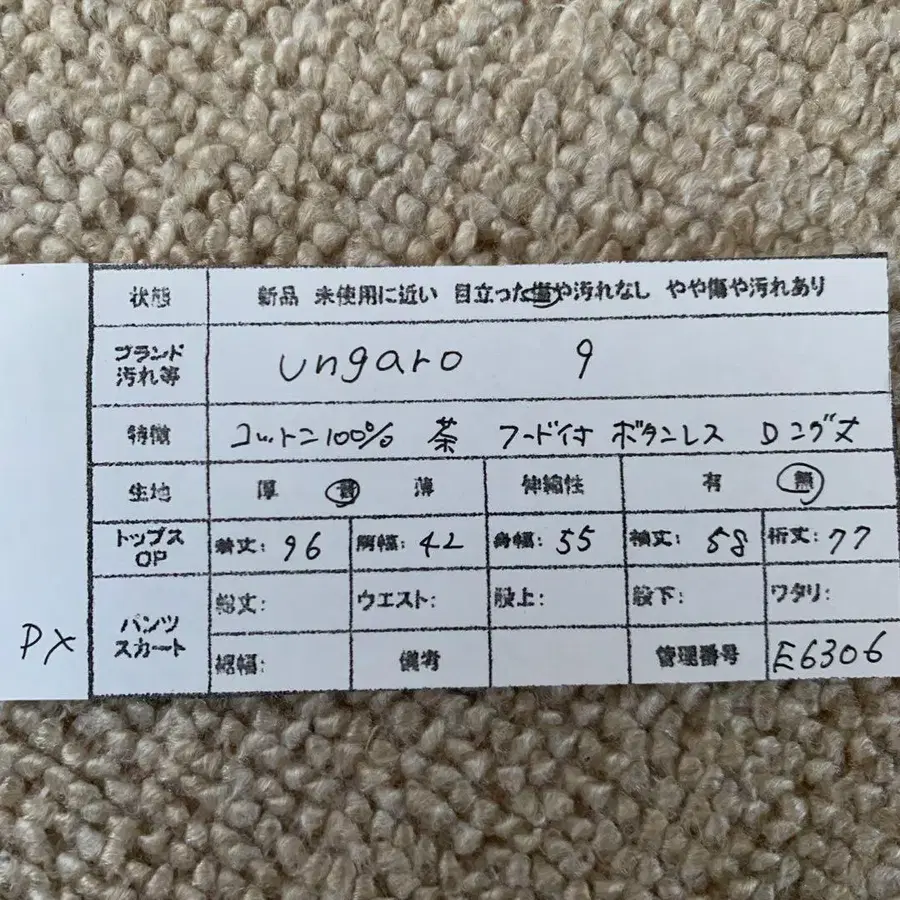 状態 新品 未使用に近い 目立った傷や汚れなし やや傷や汚れあり
ブランド
汚れ等 ungaro 9
特徴 コットン100% 茶 フード付 ボタンレス ロング丈
生地 厚 普 薄 伸縮性 有 無
トップス
OP 着丈: 96 胸幅: 42 身幅: 55 袖丈: 58 裄丈: 77
パンツ
スカート 総丈: ウエスト: 股上: 股下: ワタリ:
裾幅: 備考 管理番号 E6306
PX